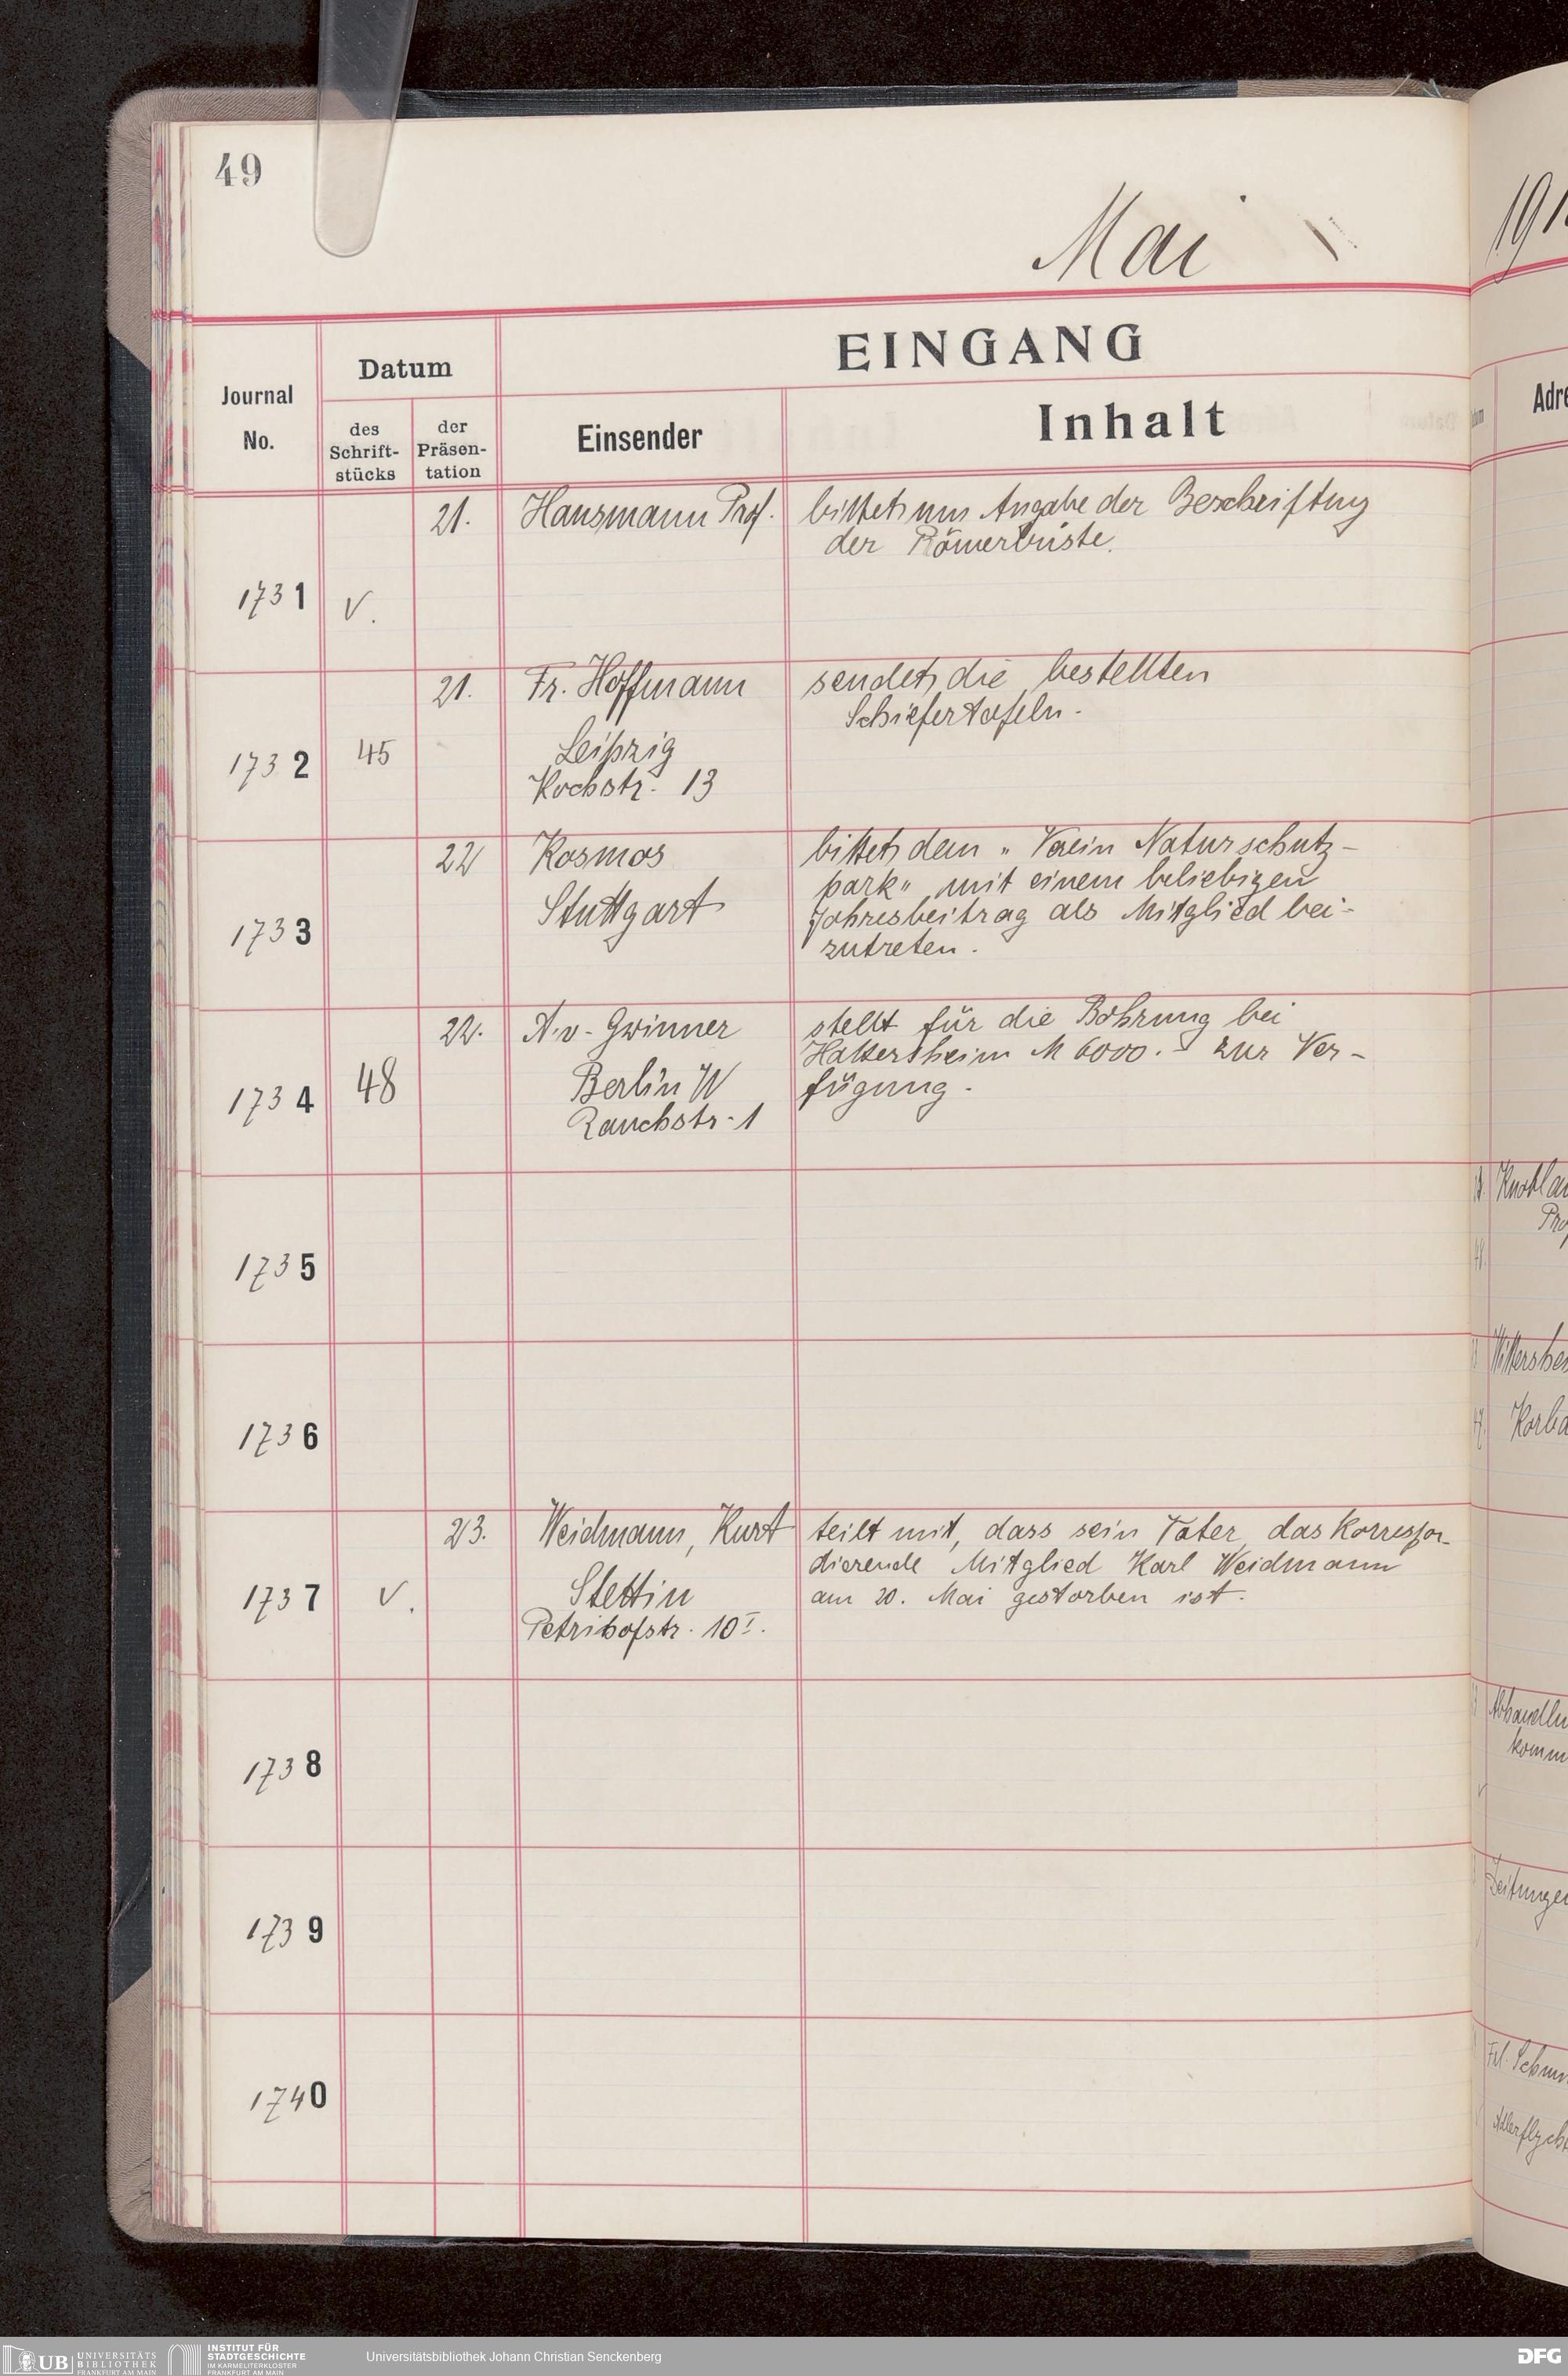 49
Mai
191
EINGANG
Datum
Journal
No.
des
Schrift-
stücks
der
Präsen-
tation
Einsender
Inhalt
Adre
21. Hausmann Prof. bittet um Angabe der Beschriftung
der Römerbüste.
1731 V.
21. Fr. Hoffmann sendet die bestellten
Schiefertafeln.
1732 45 Leipzig
Kochstr. 13
22 Kosmos bittet dem „Verein Naturschutz-
park" mit einem beliebigen
1733 Stuttgart Jahresbeitrag als Mitglied bei-
zutreten.
22. A. v. Gwinner stellt für die Bohrung bei
Hattersheim M 6000.- zur Ver-
1734 48 Berlin W fügung.
Rauchstr. 1
Knobla
Pro
1735
1736
Korba
23. Weidmann, Kurt teilt mit, dass sein Vater, das Korrespon-
dierende Mitglied Karl Weidmann
1737 V. Stettin am 20. Mai gestorben ist.
Petrihofstr. 10 I.
Abhandlu
komm
1738
Zeitunge
1739
Frl. Schm
1740
Adlerflych
UB UNIVERSITÄTS
BIBLIOTHEK
FRANKFURT AM MAIN
INSTITUT FÜR
STADTGESCHICHTE
IM KARMELITERKLOSTER
FRANKFURT AM MAIN
Universitätsbibliothek Johann Christian Senckenberg
DFG